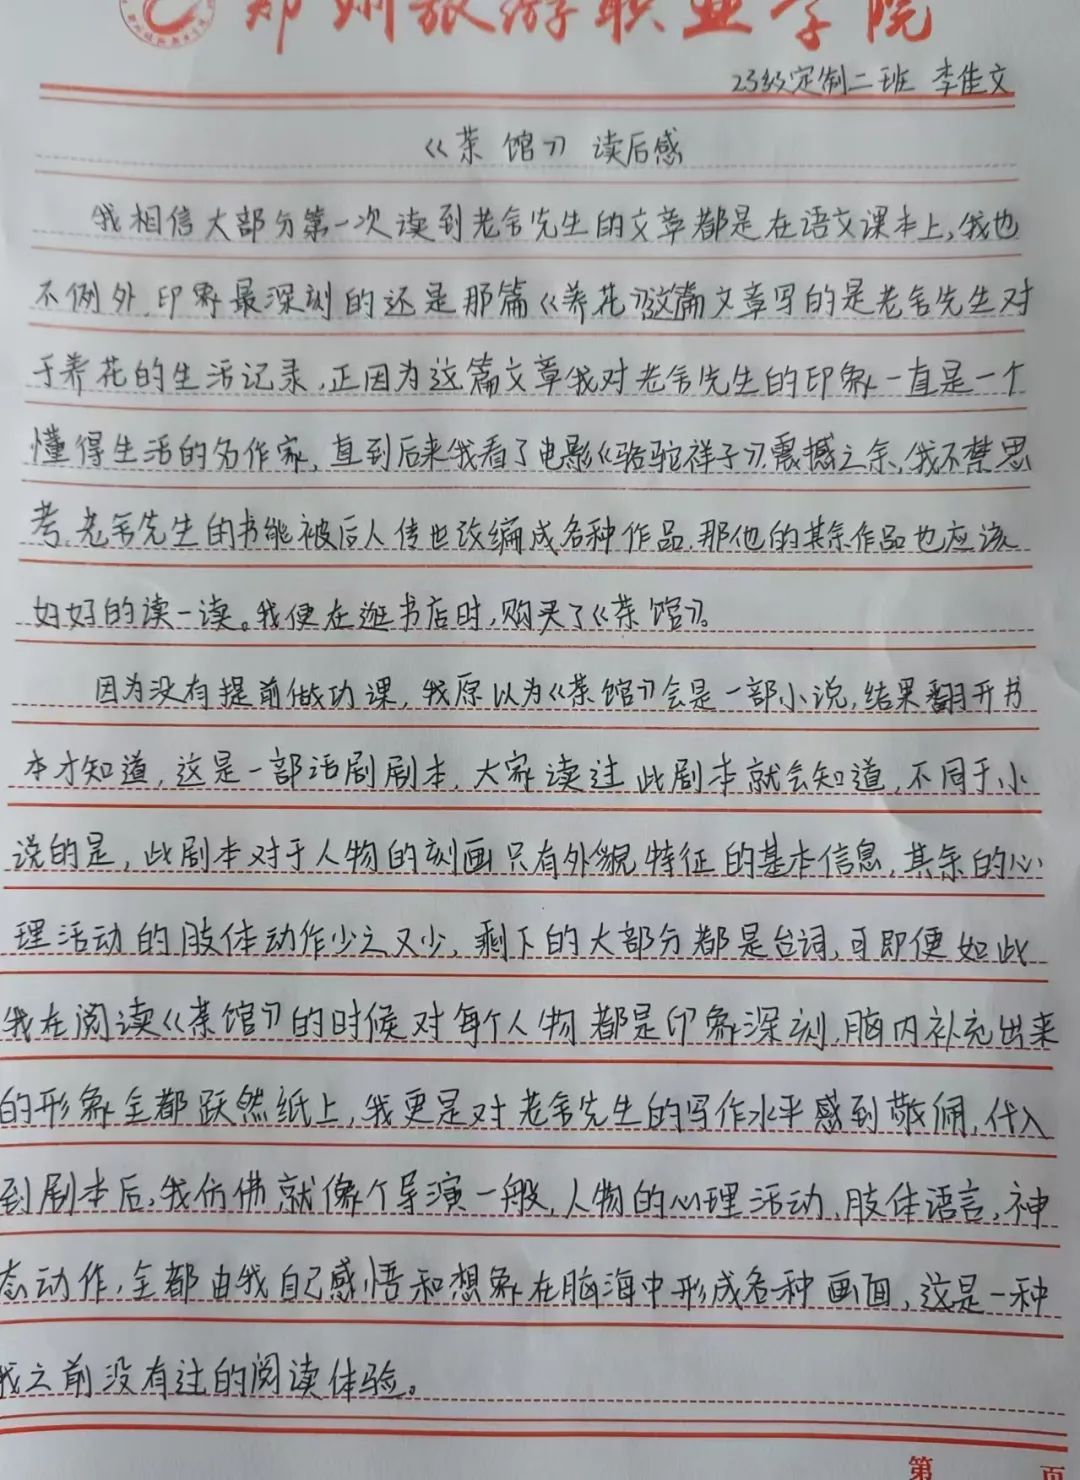 郑州旅游职业学院
23级定制二班 李佳文
《茶馆》读后感
我相信大部分第一次读到老舍先生的文章都是在语文课本上,我也
不例外,印象最深刻的还是那篇《养花》这篇文章写的是老舍先生对
于养花的生活记录,正因为这篇文章我对老舍先生的印象一直是一个
懂得生活的名作家,直到后来我看了电影《骆驼祥子》,震撼之余,我不禁思
考,老舍先生的书能被后人传也改编成各种作品,那他的其余作品也应该
好好的读一读。我便在逛书店时,购买了《茶馆》。
因为没有提前做功课,我原以为《茶馆》会是一部小说,结果翻开书
本才知道,这是一部话剧剧本,大家读过此剧本就会知道,不同于小
说的是,此剧本对于人物的刻画只有外貌特征的基本信息,其余的心
理活动的肢体动作少之又少,剩下的大部分都是台词,可即便如此
我在阅读《茶馆》的时候对每个人物都是印象深刻,脑内补充出来
的形象全都跃然纸上,我更是对老舍先生的写作水平感到敬佩,代入
到剧本后,我仿佛就像个导演一般,人物的心理活动,肢体语言,神
态动作,全都由我自己感悟和想象在脑海中形成各种画面,这是一种
我之前没有过的阅读体验。
第 页